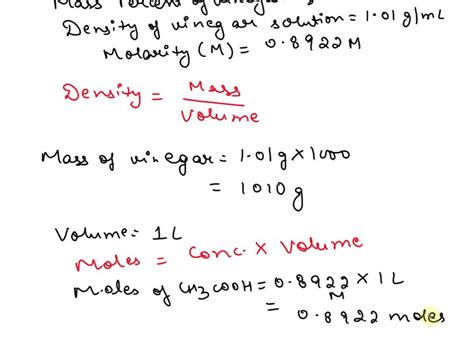 Mass Percent of vinegar
Density of vinegar solution = 1.01 g/mL
Molarity (M) = 0.8922 M
Density = Mass
Volume
Mass of vinegar = 1.01 g × 1000
= 1010 g
Volume = 1 L
Moles = Conc. × Volume
Moles of CH3COOH = 0.8922 × 1 L
M
= 0.8922 moles